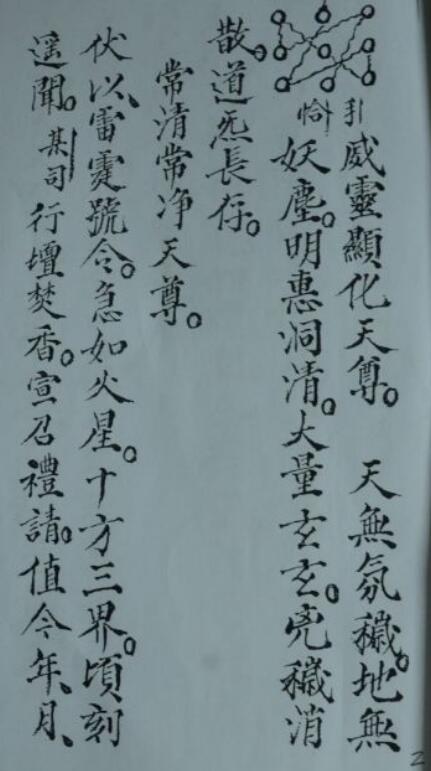 引威靈顯化天尊。 天無氛穢。地無
恰妖塵。明惠洞清。大量玄玄。兇穢消
散。道炁長存。
常清常净天尊。
伏以、雷霆號令。急如火星。十方三界。頃刻
遥聞。某司行壇焚香。宣召禮請。值今年、月、
2